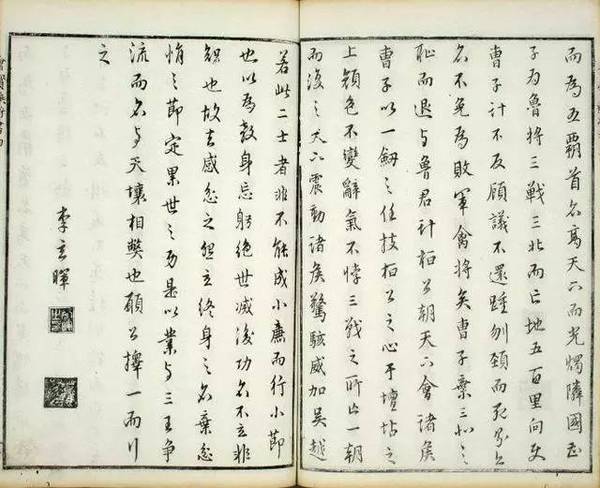 而為五霸首名高天下而光燭隣國曹
子為魯將三戰三北而亡地五百里向使
曹子計不反顧議不還踵刎頸而死則亦
名不免為敗軍禽將矣曹子棄三北之
恥而退与魯君計桓公朝天下會諸侯
曹子以一劒之任枝桓公之心于壇坫之
上顏色不變辭氣不悖三戰之所亡一朝
而復之天下震動諸侯驚駭威加吳越
若此二士者非不能成小廉而行小節
也以為殺身忘躬絕世滅後功名不立非
智也故去感忿之怨立終身之名棄忿
悁之節定累世之功是以業与三王爭
流而名与天壤相獘也願公擇一而行
之
李玄暉